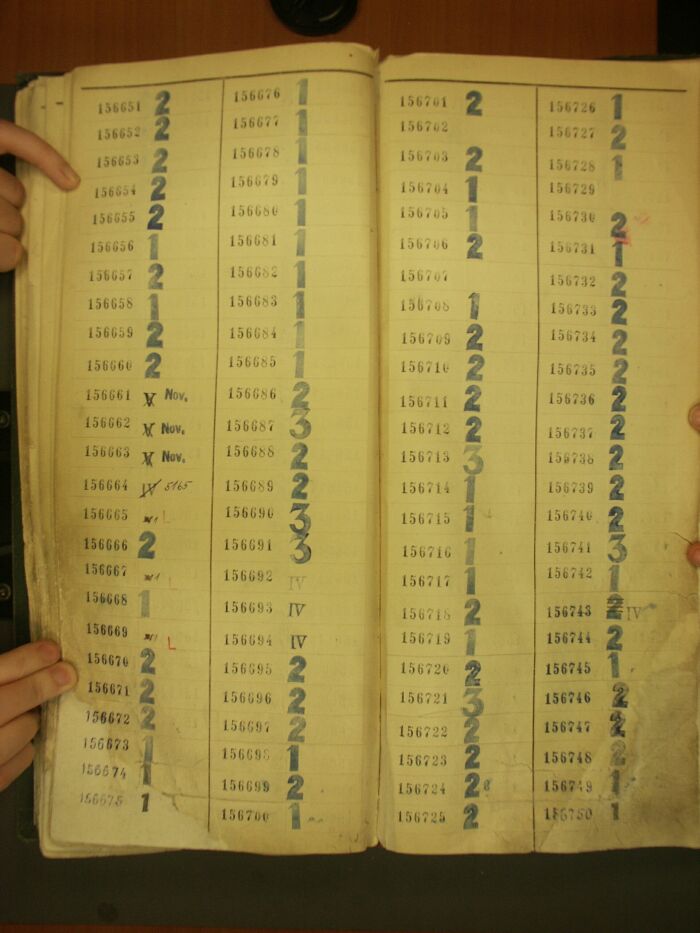 156651 2
156652 2
156653 2
156654 2
156655 2
156656 1
156657 2
156658 1
156659 2
156660 2
156661 V Nov.
156662 V Nov.
156663 V Nov.
156664 IV 5165
156665 L
156666 2
156667 L
156668 1
156669 L
156670 2
156671 2
156672 2
156673 1
156674 1
156675 1
156676 1
156677 1
156678 1
156679 1
156680 1
156681 1
156682 1
156683 1
156684 1
156685 1
156686 2
156687 3
156688 2
156689 2
156690 3
156691 3
156692 IV
156693 IV
156694 IV
156695 2
156696 2
156697 2
156698 1
156699 2
156700 1
156701 2
156702
156703 2
156704 1
156705 1
156706 2
156707
156708 1
156709 2
156710 2
156711 2
156712 2
156713 3
156714 1
156715 1
156716 1
156717 1
156718 2
156719 1
156720 2
156721 3
156722 2
156723 2
156724 2 8
156725 2
156726 1
156727 2
156728 1
156729
156730 2
156731 1
156732 2
156733 2
156734 2
156735 2
156736 2
156737 2
156738 2
156739 2
156740 2
156741 3
156742 1
156743 2 IV
156744 2
156745 1
156746 2
156747 2
156748 2
156749 1
156750 1